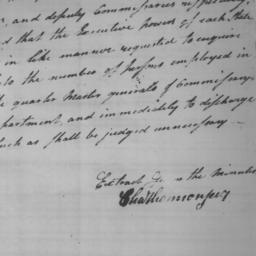 and deputy Commissaries respectively,
that the Executive powers of each State
in like manner requested to enquire
to the number of persons employed in
quarter Master generals & Commissary
partment, and immediately to discharge
such as shall be judged unnecessary —
Extract from the minutes
Cha Thomson secy